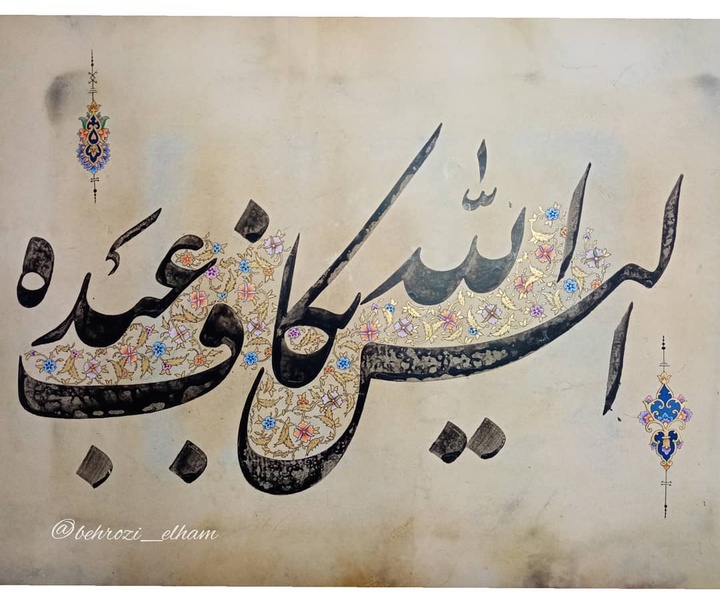 الیس الله بکاف عبده
@behrozi_elham